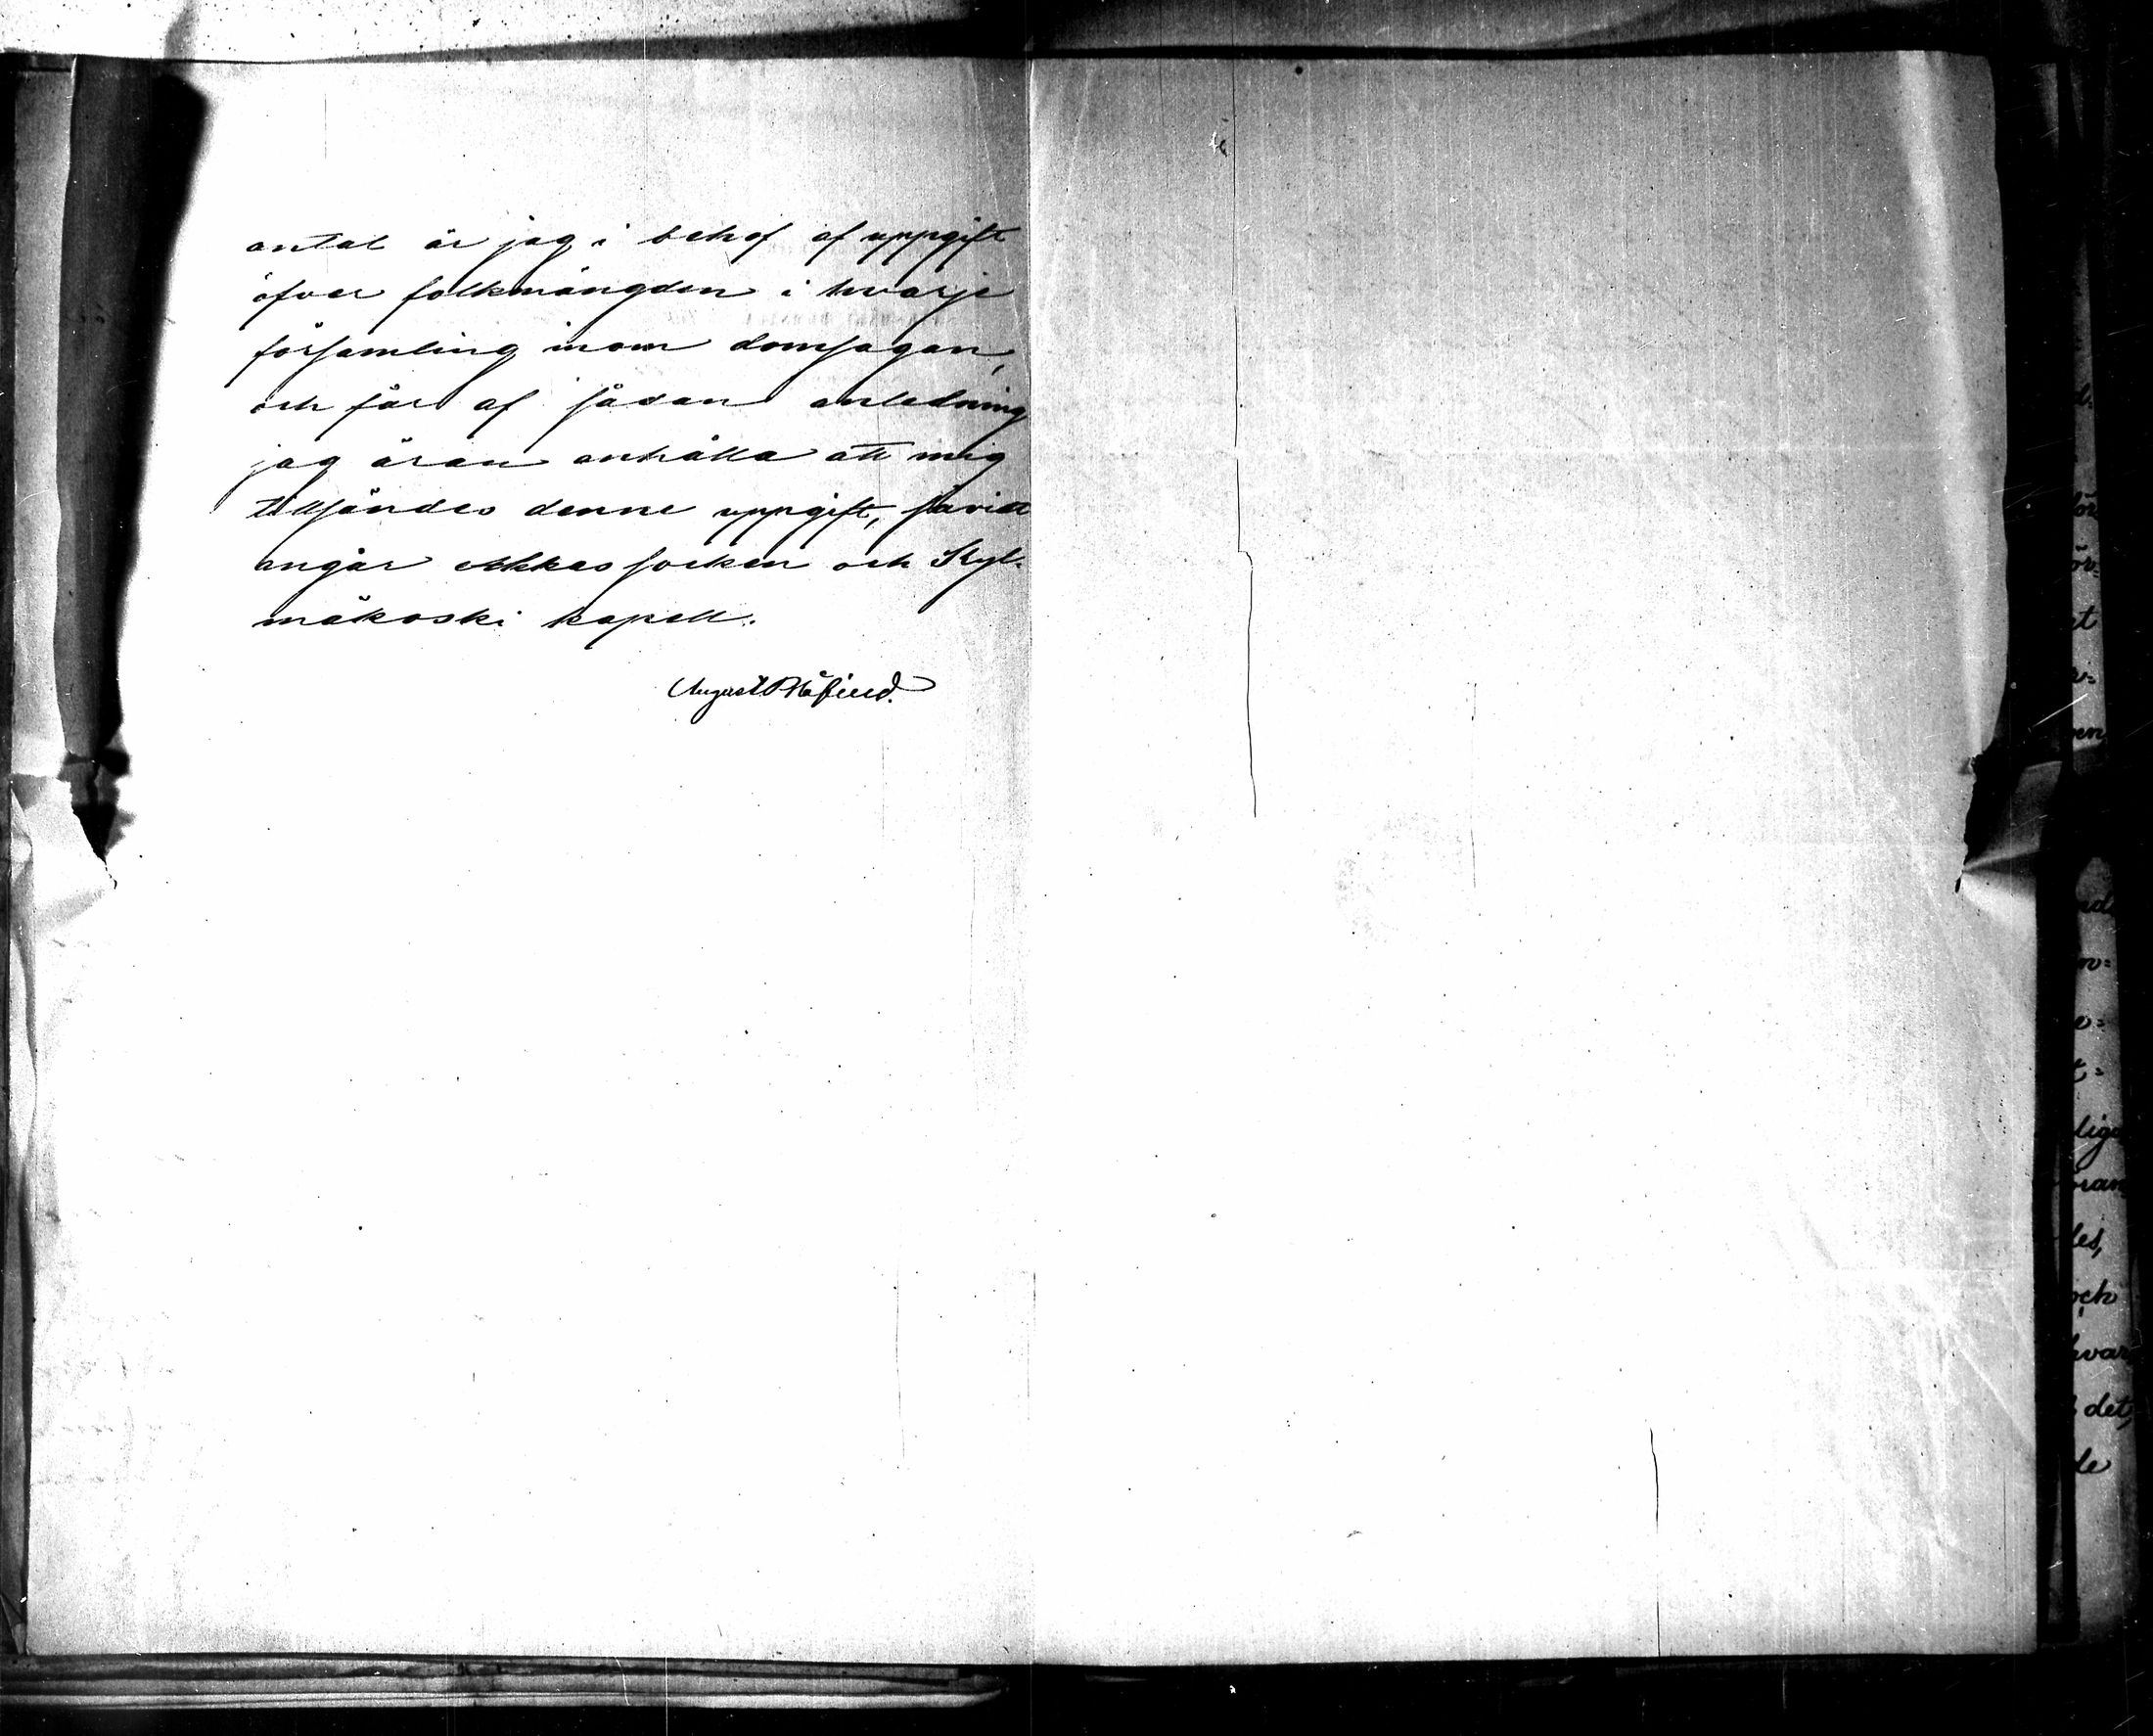 antal är jag i behof af uppgift
öfver folkmängden i hvarje
församling inom domsagan,
och får af sådan anledning
jag äran anhålla att mig
tillsändes denne uppgift, såvidt
angår Akkas socken och Kyl-
mäkoski kapell.
August
för
ör-
et
ven
liga
les,
och
hvar
det,
de